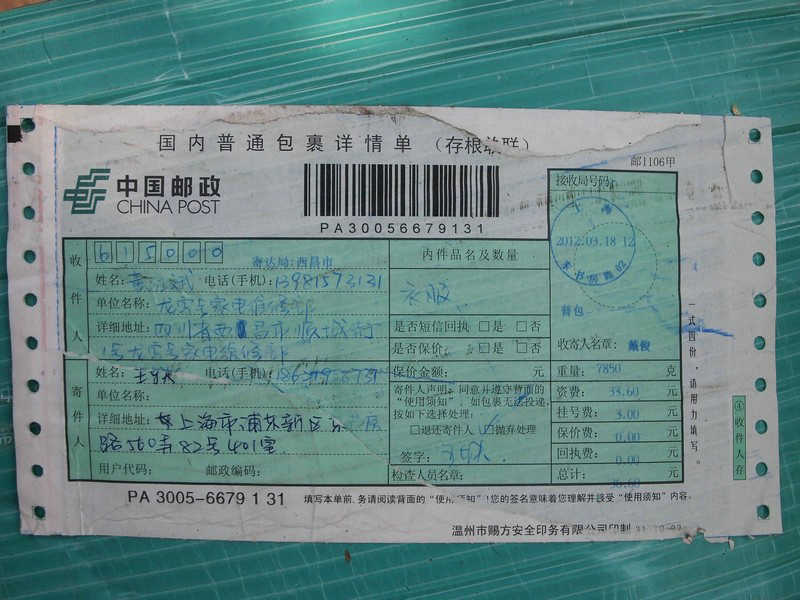 国内普通包裹详情单 (存根联)
邮1106甲
中国邮政
CHINA POST
PA30056679131
接收局号码:
上海
2012.03.18 12
收件人
615000
寄达局:西昌市
内件品名及数量
姓名: 电话(手机):13981593131
衣服
普包
单位名称:
详细地址:四川省西昌市顺城街
是否短信回执 □是 □否
是否保价: □是 □否
收寄人名章: 戴俊
保价金额: 元
重量: 7850 克
寄件人
姓名: 电话(手机):
寄件人声明:同意并遵守背面的
"使用须知",如包裹无法投递,
按如下选择处理:
资费: 33.60 元
单位名称:
挂号费: 3.00 元
详细地址: 上海市浦东新区
□退还寄件人 ☑抛弃处理
保价费: 0.00 元
路560弄82号401室
签字:
回执费: 0.00 元
用户代码: 邮政编码:
检查人员名章:
总计: 36.60 元
一式四份,请用力填写。
④收件人存
PA 3005-6679 1 31 填写本单前,务请阅读背面的"使用须知"!您的签名意味着您理解并接受"使用须知"内容。
温州市赐方安全印务有限公司印制